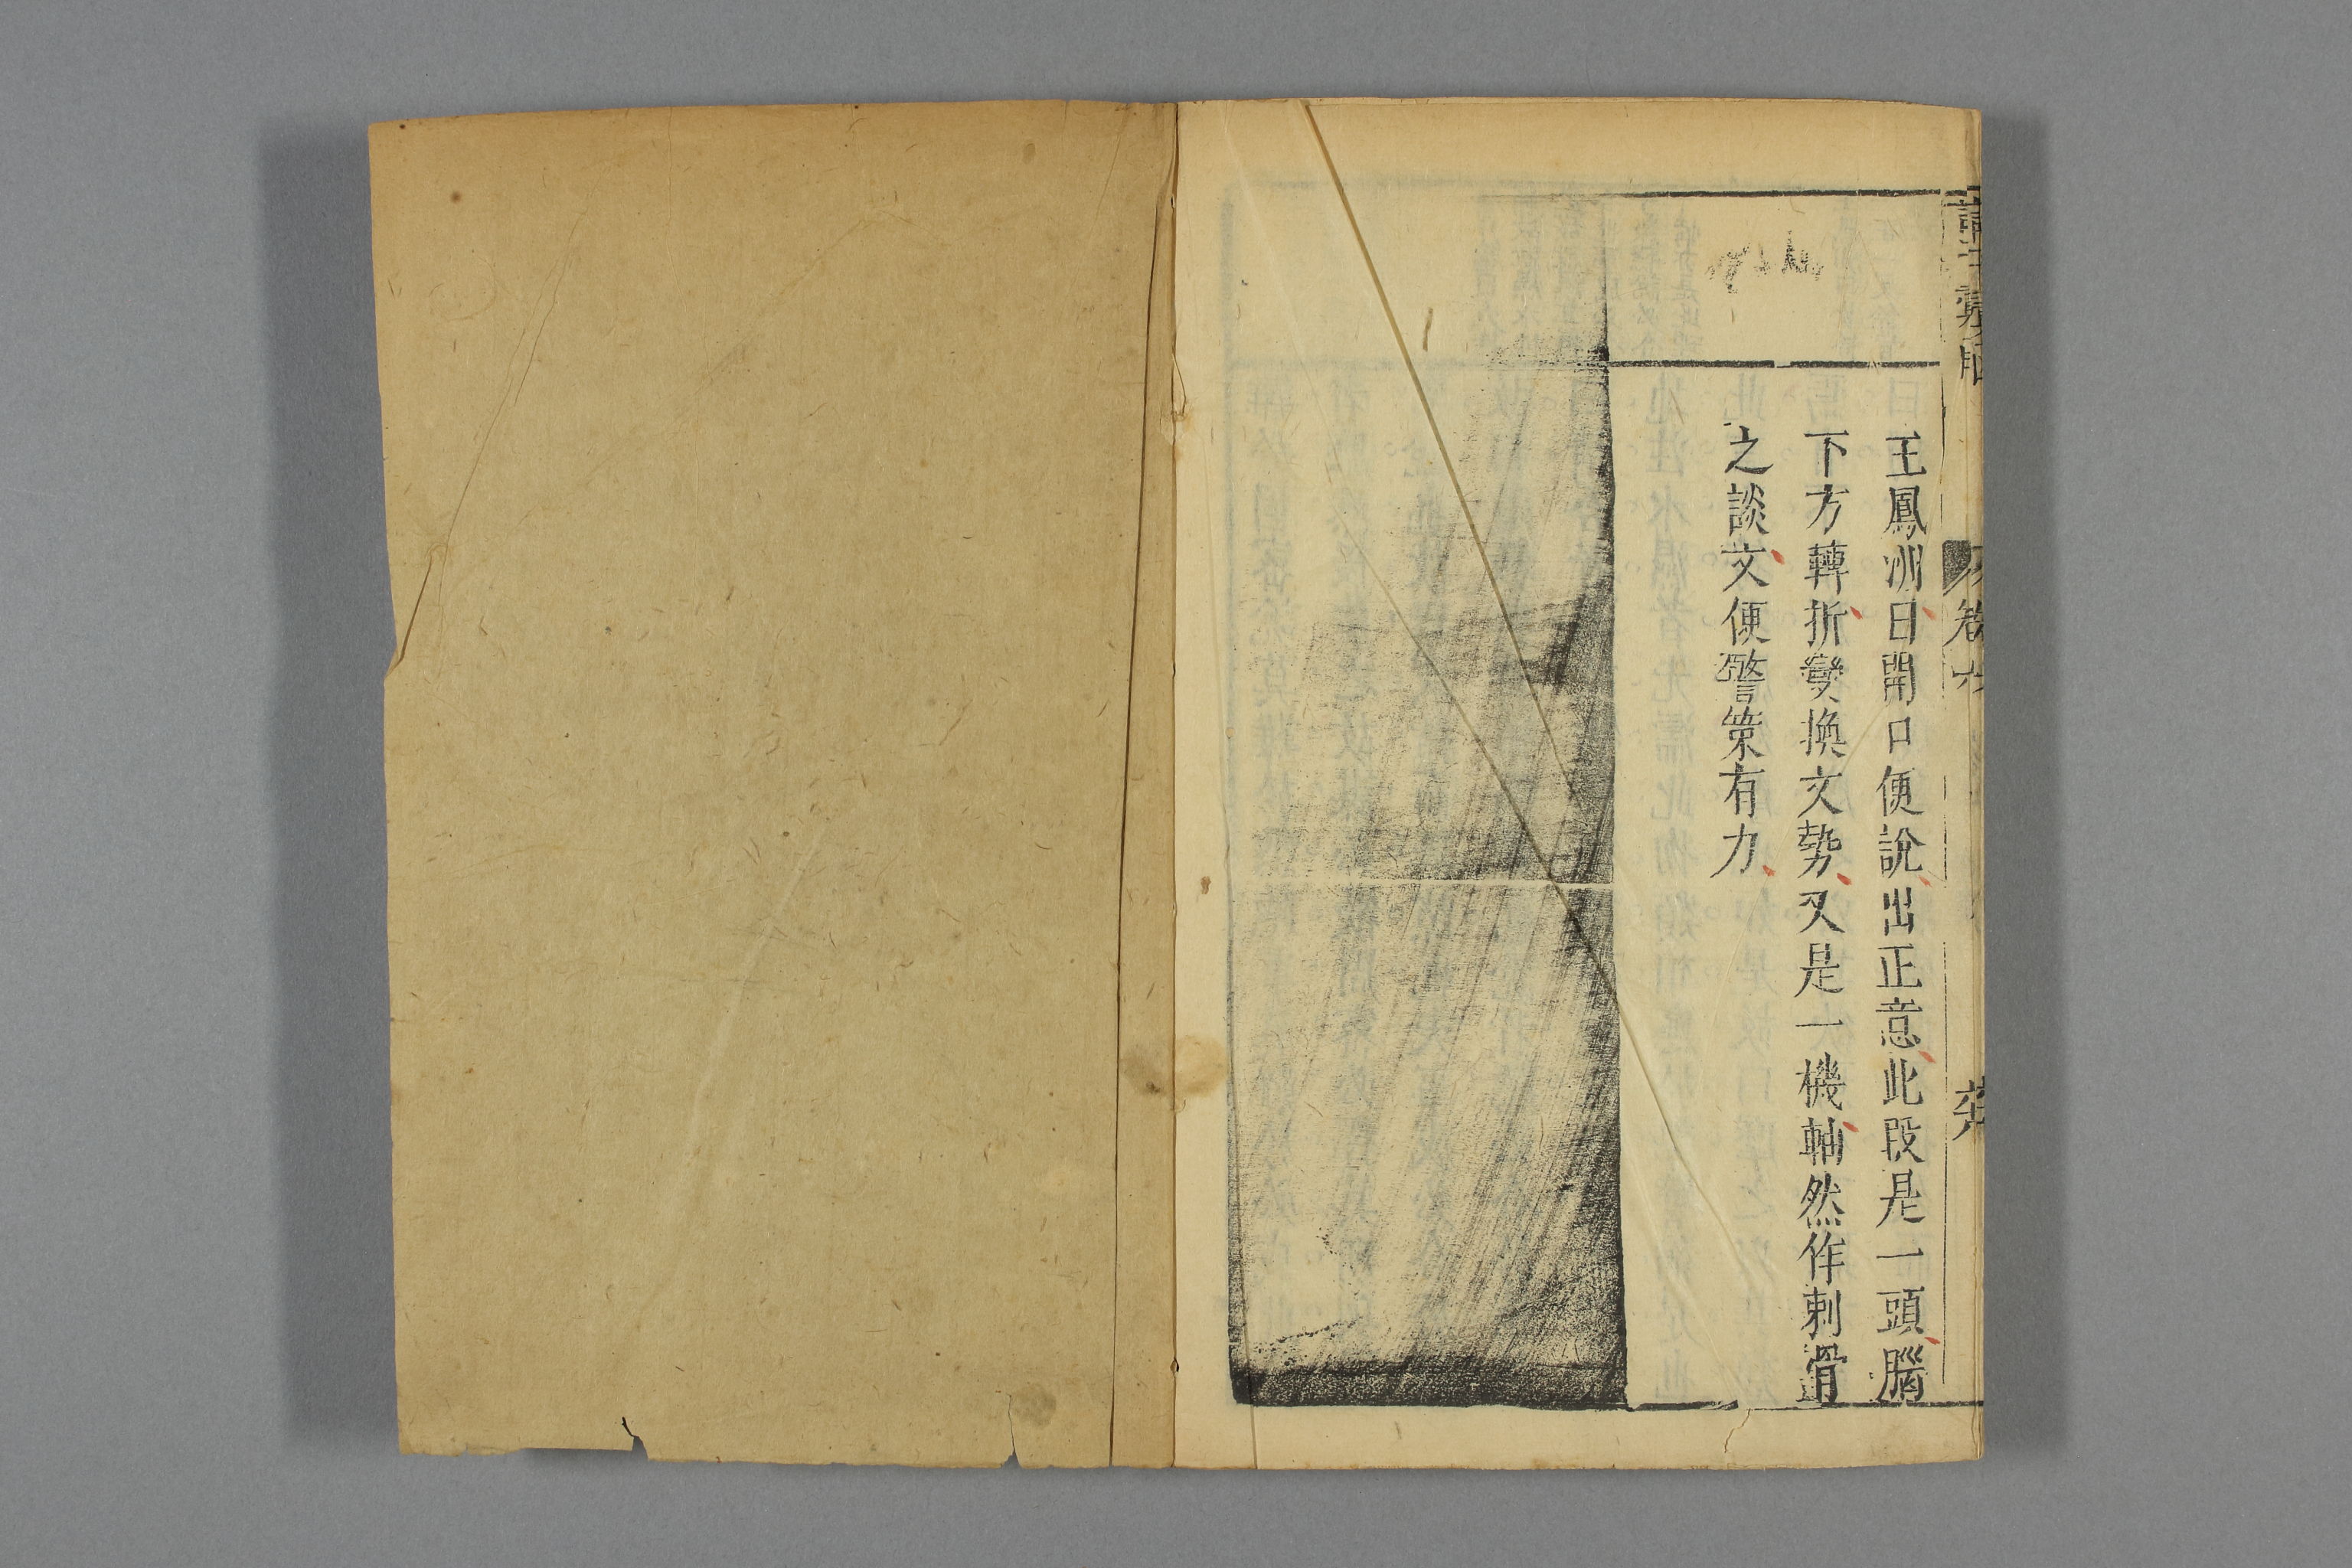 王鳳洲曰開口便說出正意此段是一頭腦
下方轉折變換文勢又是一機軸然作刺骨
之談文便警策有力
卷六